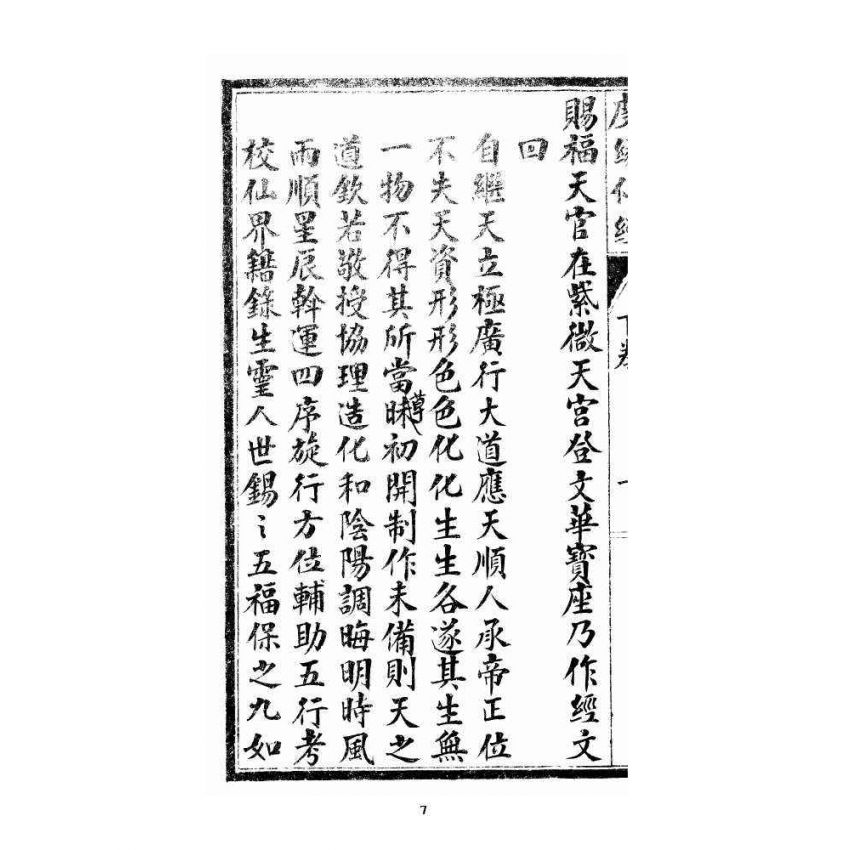 賜福天官在紫微天宮登文華寶座乃作經文
曰
自繼天立極廣行大道應天順人承帝正位
不失天資形形色色化化生生各遂其生無
一物不得其所當昧初開制作未備則天之
道欽若敬授協理造化和陰陽調晦明時風
雨順星辰斡運四序旋行方位輔助五行考
校仙界籍錄生靈人世錫々五福保之九如
7